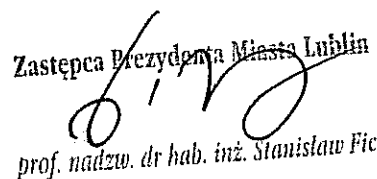 Zastępca Prezydenta Miasta Lublin
prof. nadzw. dr hab. inż. Stanisław Fic